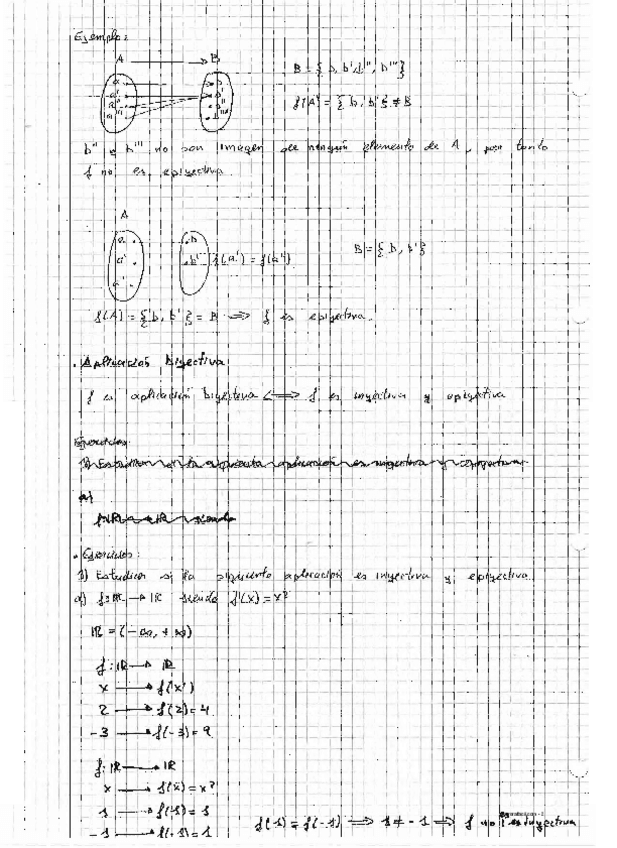 Ejemplo:
A → B
B = {b, b', b'', b'''}
f(A) = {b, b'} ≠ B
b'' e b''' no son imagen de ningún elemento de A, por tanto
f no es epiyectiva.
A
a.
.b
B = {b, b'}
a'
.b' f(a') = f(a'')
a''
f(A) = {b, b'} = B ⟹ f es epiyectiva.
. Aplicación Biyectiva
f es aplicación biyectiva ⟺ f es inyectiva y epiyectiva
Ejercicios
1) Estudiar si la siguiente aplicación es inyectiva y epiyectiva
a)
f: ℝ → ℝ siendo
. Ejercicios:
1) Estudiar si la siguiente aplicación es inyectiva y epiyectiva.
a) f: ℝ → ℝ siendo f(x) = x²
ℝ = (-∞, +∞)
f: ℝ → ℝ
x → f(x)
2 → f(2) = 4
-3 → f(-3) = 9
f: ℝ → ℝ
x → f(x) = x²
1 → f(1) = 1
-1 → f(-1) = 1
f(1) = f(-1) ⟹ 1 ≠ -1 ⟹ f no es inyectiva